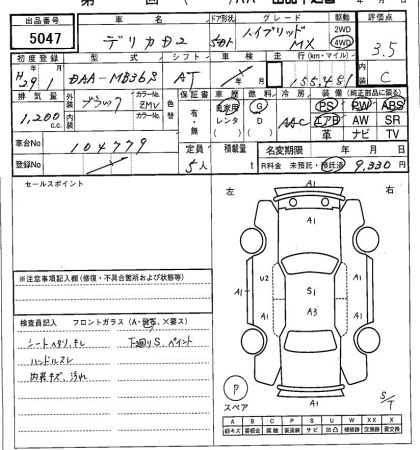 出品番号 車名 ドア形状 グレード 駆動 評価点
5047 デリカD2 5ドア ハイブリッド MX 2WD 4WD 3.5
初度登録 型式 シフト 車検 走行(km・マイル) 内装
H29年1月 DAA-MB36S AT 年 月 155,481 C
排気量 外装 カラーNo. 色替 保証書 車歴 燃料 冷房 装備(純正部品に限る)
1,200 c.c. ブラック ZMV 有・無 自家用 G AAC PS PW ABS
内装 カラーNo. レンタ D エアB AW SR
革 ナビ TV
車台No 104779 定員 積載量 名変期限 年 月 日
登録No 5人 t R料金 未預託・預託済 9,330円
セールスポイント
左 右
A1
A1
A1 U2 S1 A1 A1
A3
A1
※注意事項記入欄(修復・不具合箇所および状態等)
検査員記入 フロントガラス(A・飛石、×要ス)
シートヘタリ、キレ 下廻りS、ペイント
ハンドルスレ
内装キズ、汚れ
P
スペア
S/T
A B C P S U W XX X
線キズ 要板金 腐触 要塗装 サビ 凹凸 補修跡 交換跡 要交換